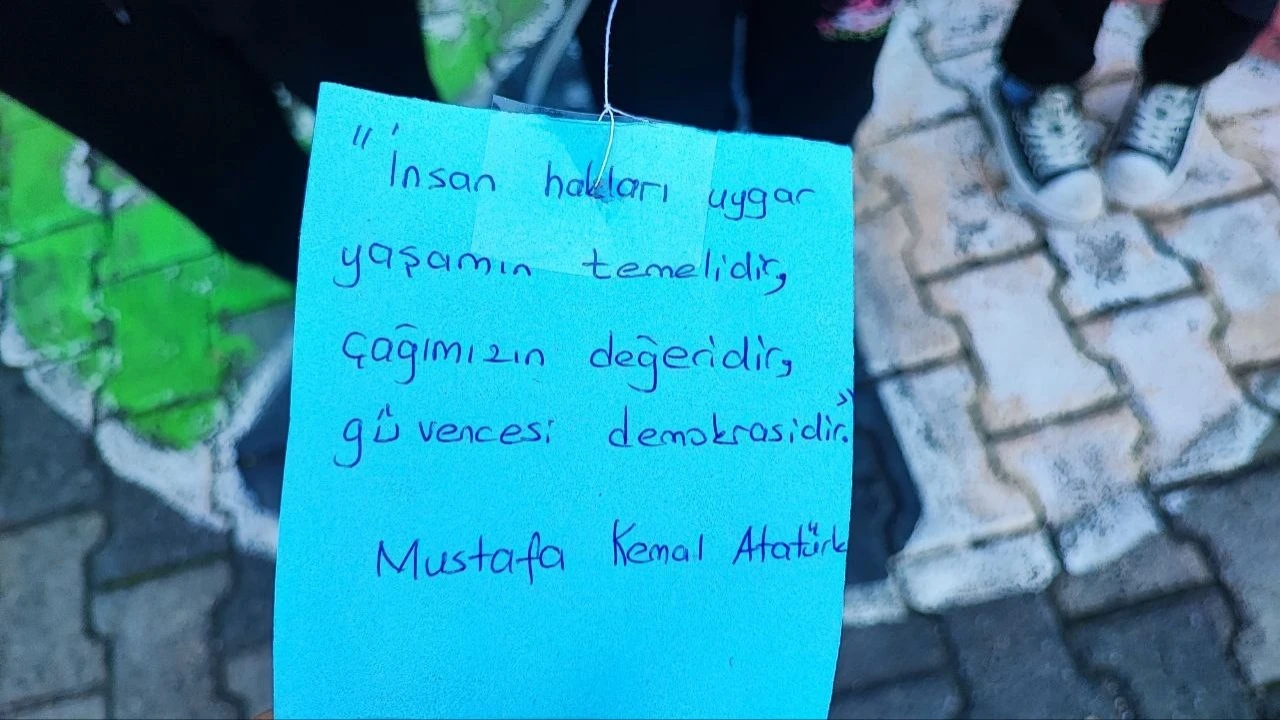 "İnsan hakları uygar
yaşamın temelidir,
çağımızın değeridir,
güvencesi demokrasidir."
Mustafa Kemal Atatürk